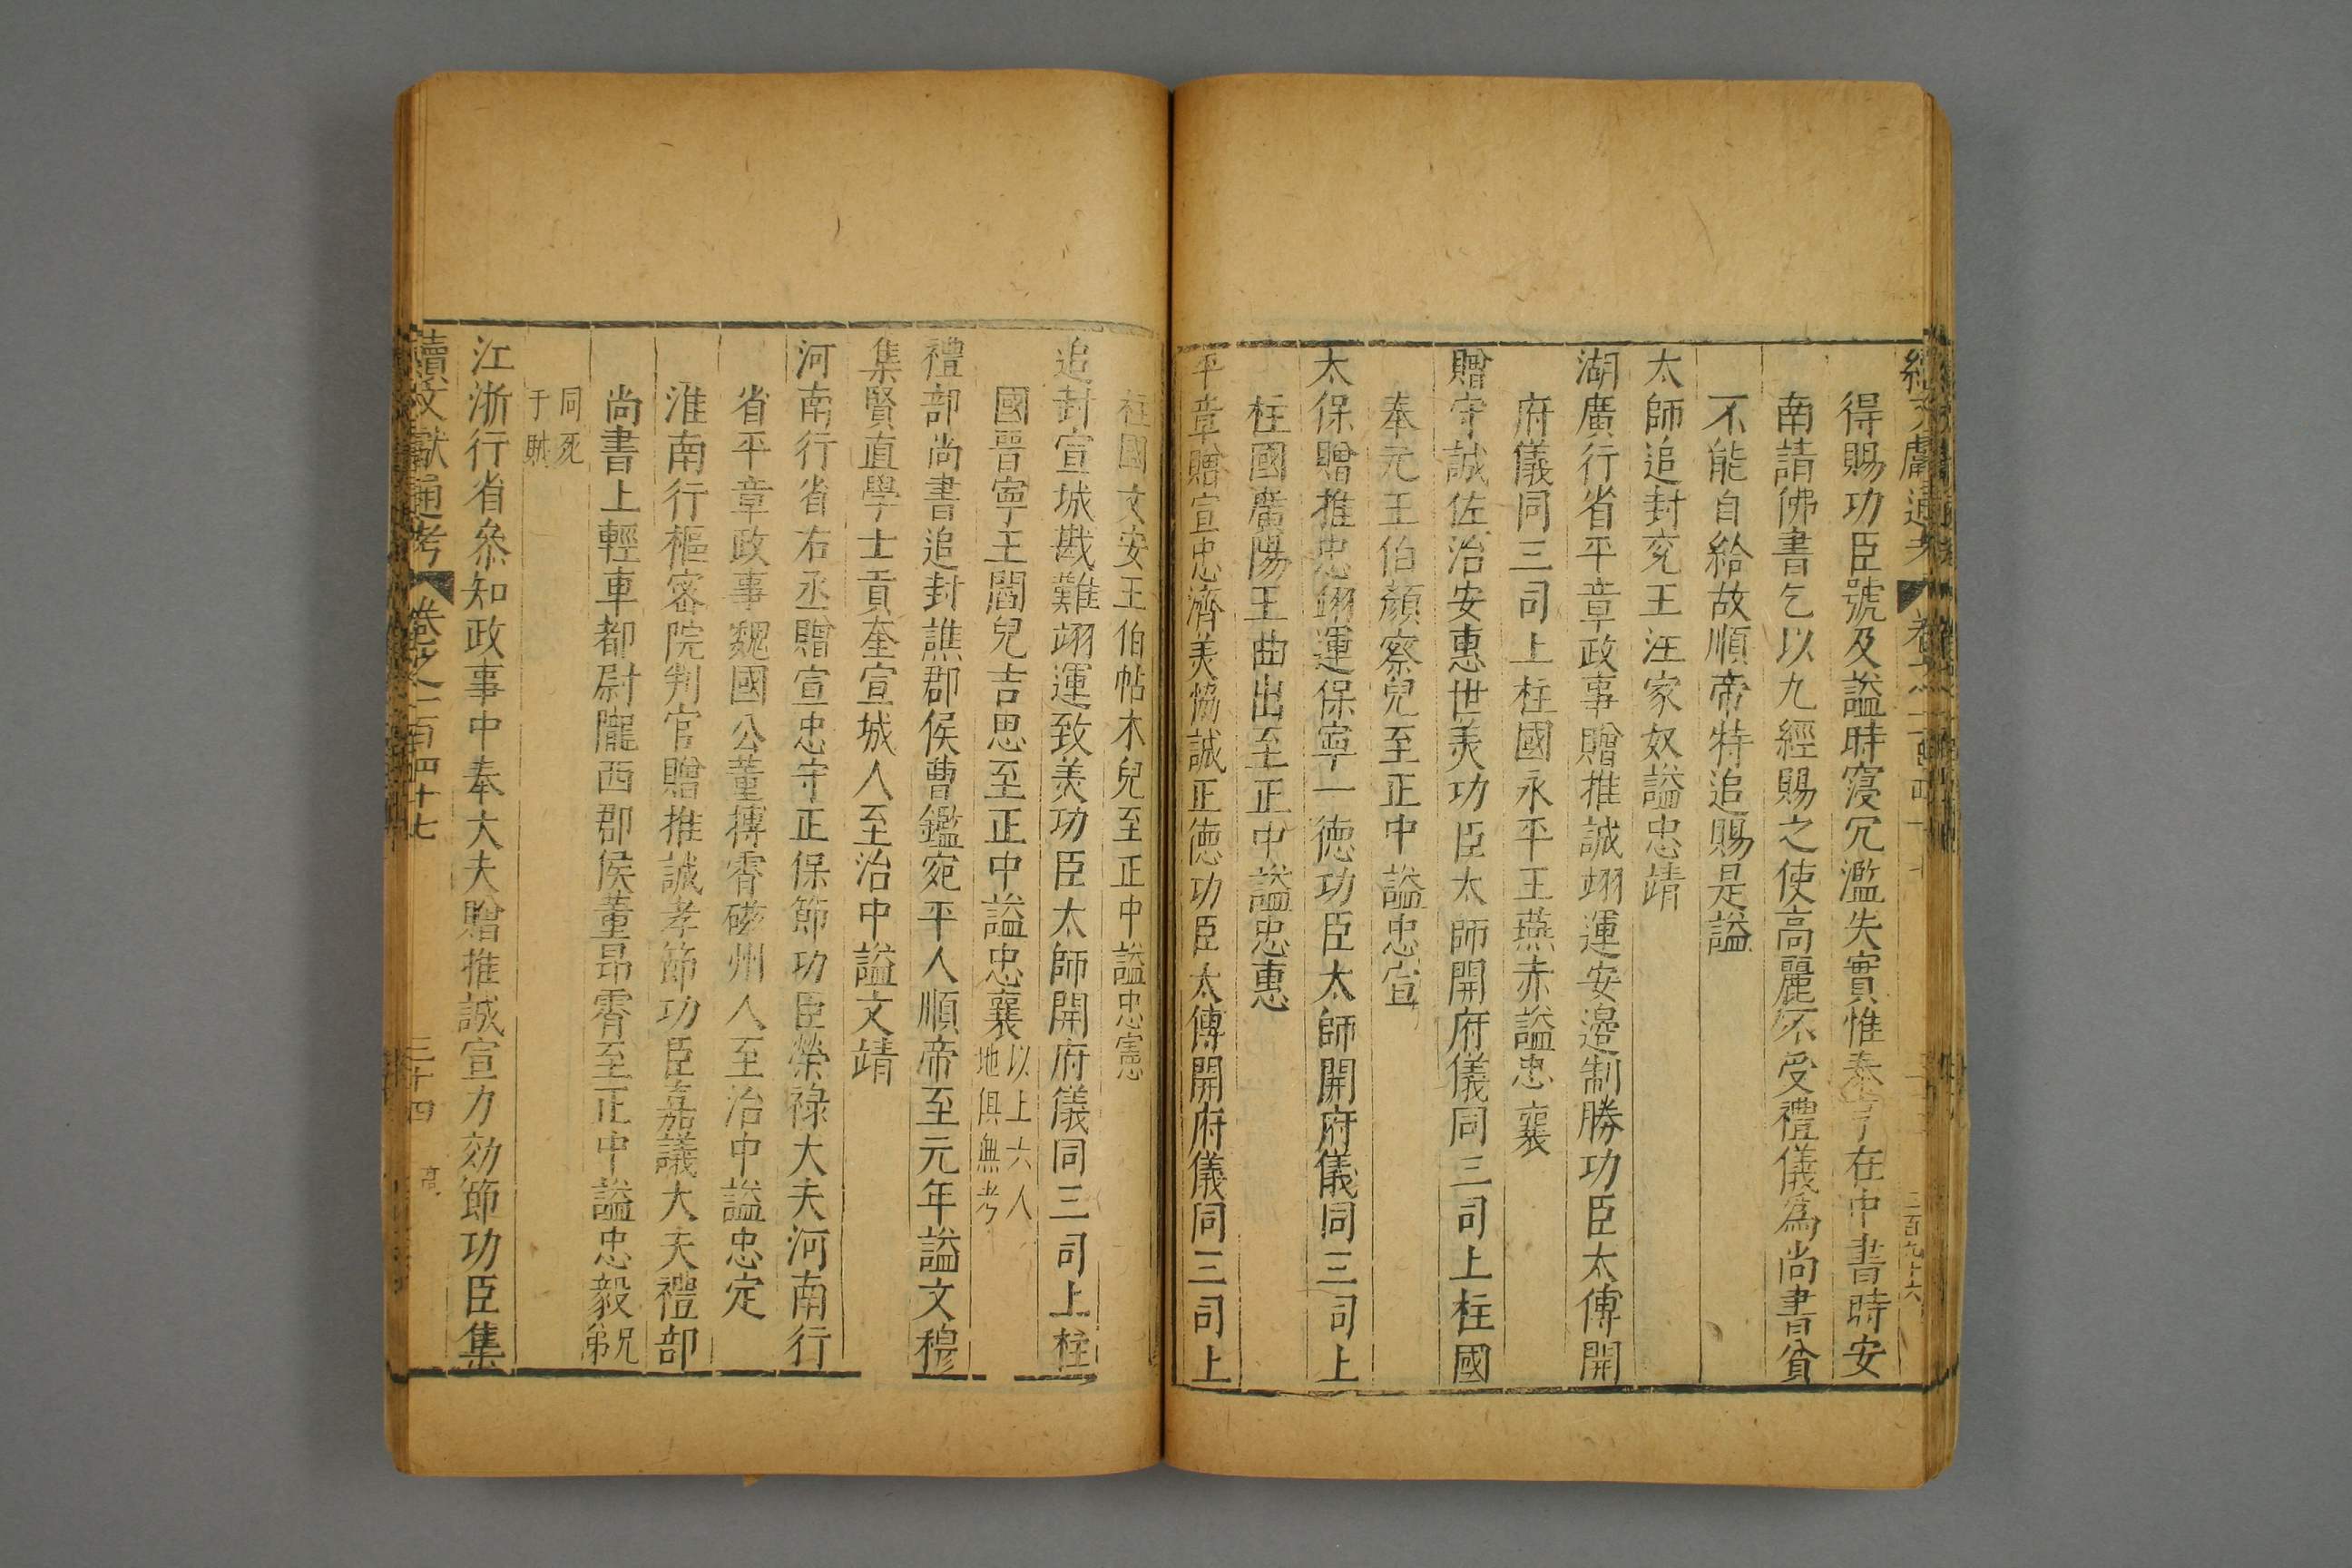 得賜功臣號及謚時寖冗濫失實惟泰亨在中書時安
南請佛書乞以九經賜之使高麗不受禮儀爲尚書貧
不能自給故順帝特追賜是謚
太師追封兖王汪家奴謚忠靖
湖廣行省平章政事贈推誠翊運安邉制勝功臣太傅開
府儀同三司上柱國永平王燕赤謚忠襄
贈守誠佐治安惠世美功臣太師開府儀同三司上柱國
奉元王伯顏察兒至正中謚忠宣
太保贈推忠翊運保寧一德功臣太師開府儀同三司上
柱國廣陽王曲出至正中謚忠惠
平章贈宣忠濟美恊誠正德功臣太傅開府儀同三司上
柱國文安王伯帖木兒至正中謚忠憲
追封宣城戡難翊運致美功臣太師開府儀同三司上柱
國晋寧王闊兒吉思至正中謚忠襄以上六人地俱無考
禮部尚書追封譙郡侯曹鑑宛平人順帝至元年謚文穆
集賢直學士貢奎宣城人至治中謚文靖
河南行省右丞贈宣忠守正保節功臣榮祿大夫河南行
省平章政事魏國公董摶霄磁州人至治中謚忠定
淮南行樞密院判官贈推誠孝節功臣嘉議大夫禮部
尚書上輕車都尉隴西郡侯董昂霄至正中謚忠毅兄弟
同死于賊
江浙行省叅知政事中奉大夫贈推誠宣力効節功臣集
續文獻通考 卷之一百四十七 三十四